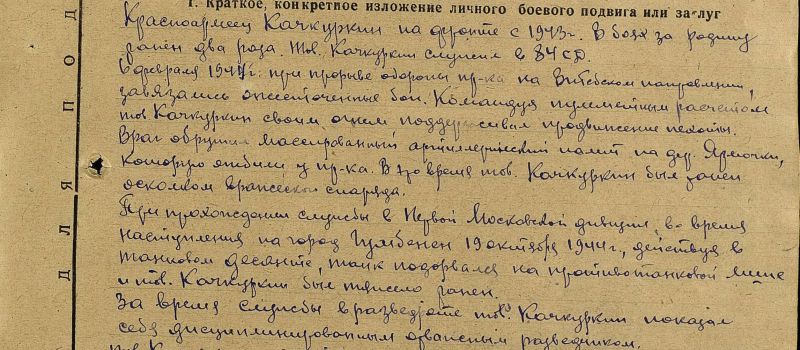 1. Краткое, конкретное изложение личного боевого подвига или заслуг
Красноармеец Качкуркин на фронте с 1943г. В боях за родину
ранен два раза. Тов. Качкуркин служил в 84 СД.
6 февраля 1944г. при прорыве обороны пр-ка на Витебском направлении,
завязались ожесточенные бои. Командуя пулеметным расчетом
тов Качкуркин своим огнем поддерживал продвижение пехоты.
Враг обрушил массированный артиллерийский налет на дер. Ямочки,
которую отбили у пр-ка. В это время тов. Качкуркин был ранен
осколком вражеского снаряда.
При прохождении службы в Первой Московской дивизии, во время
наступления на город Гумбенен 19 октября 1944г., действуя в
танковом десанте, танк подорвался на противотанковой мине
и тов. Качкуркин был тяжело ранен.
За время службы в разведроте тов. Качкуркин показал
себя дисциплинированным отважным разведчиком.
тов.
ДЛЯ ПОД